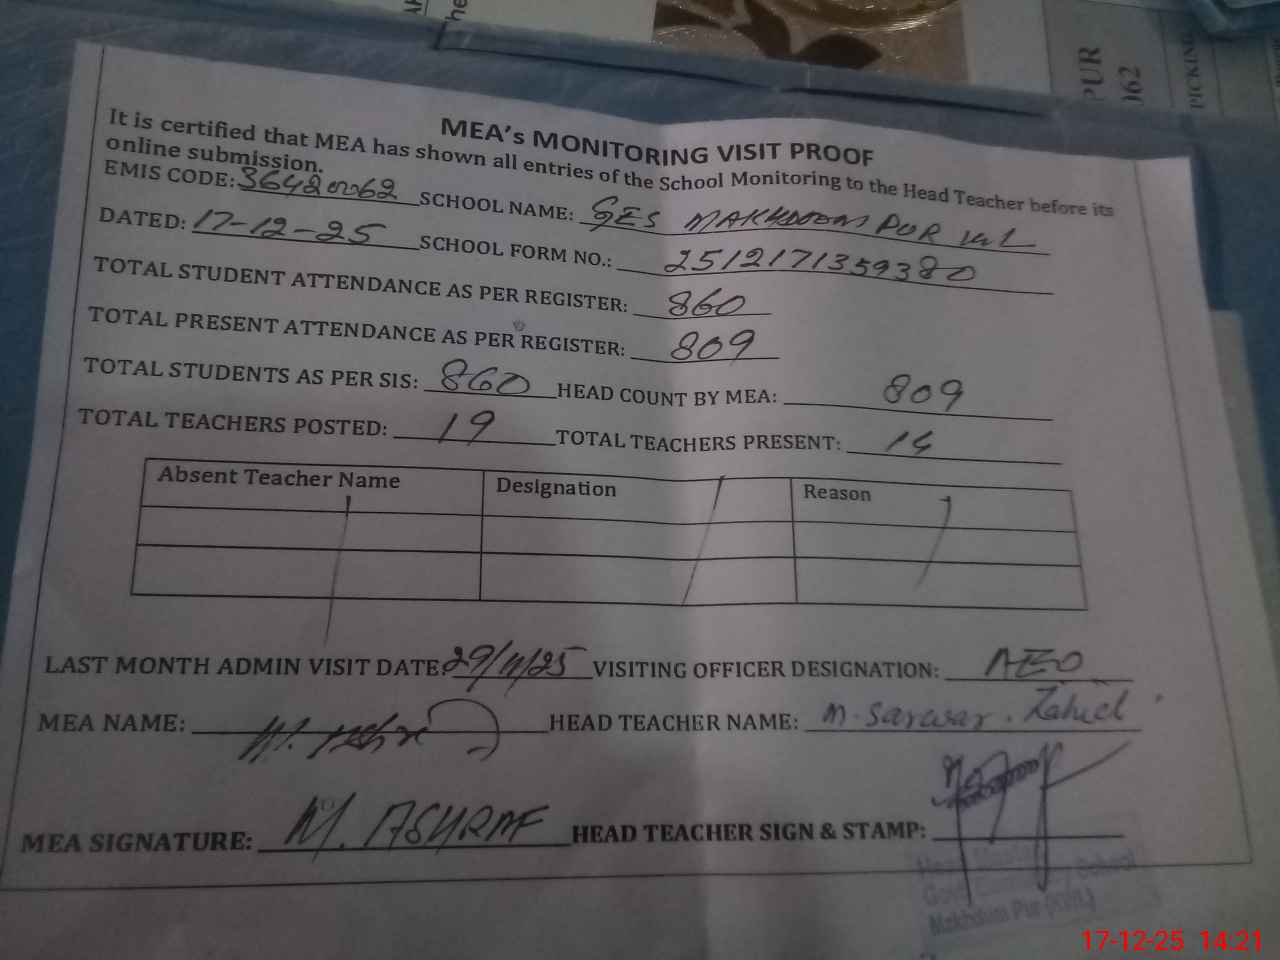 MEA's MONITORING VISIT PROOF
It is certified that MEA has shown all entries of the School Monitoring to the Head Teacher before its
online submission.
EMIS CODE: 36420062 SCHOOL NAME: GES MAKHDOOM PUR
DATED: 17-12-25 SCHOOL FORM NO.: 2512171359380
TOTAL STUDENT ATTENDANCE AS PER REGISTER: 860
TOTAL PRESENT ATTENDANCE AS PER REGISTER: 809
TOTAL STUDENTS AS PER SIS: 860 HEAD COUNT BY MEA: 809
TOTAL TEACHERS POSTED: 19 TOTAL TEACHERS PRESENT: 14
Absent Teacher Name Designation Reason
LAST MONTH ADMIN VISIT DATE: 29/11/25 VISITING OFFICER DESIGNATION: AEO
MEA NAME: HEAD TEACHER NAME: M. Sarwar. Zahid
MEA SIGNATURE: M. ASHRAF HEAD TEACHER SIGN & STAMP:
Head
Govt School
Makhdum Pur
17-12-25 14:21
PUR
062
PICKING